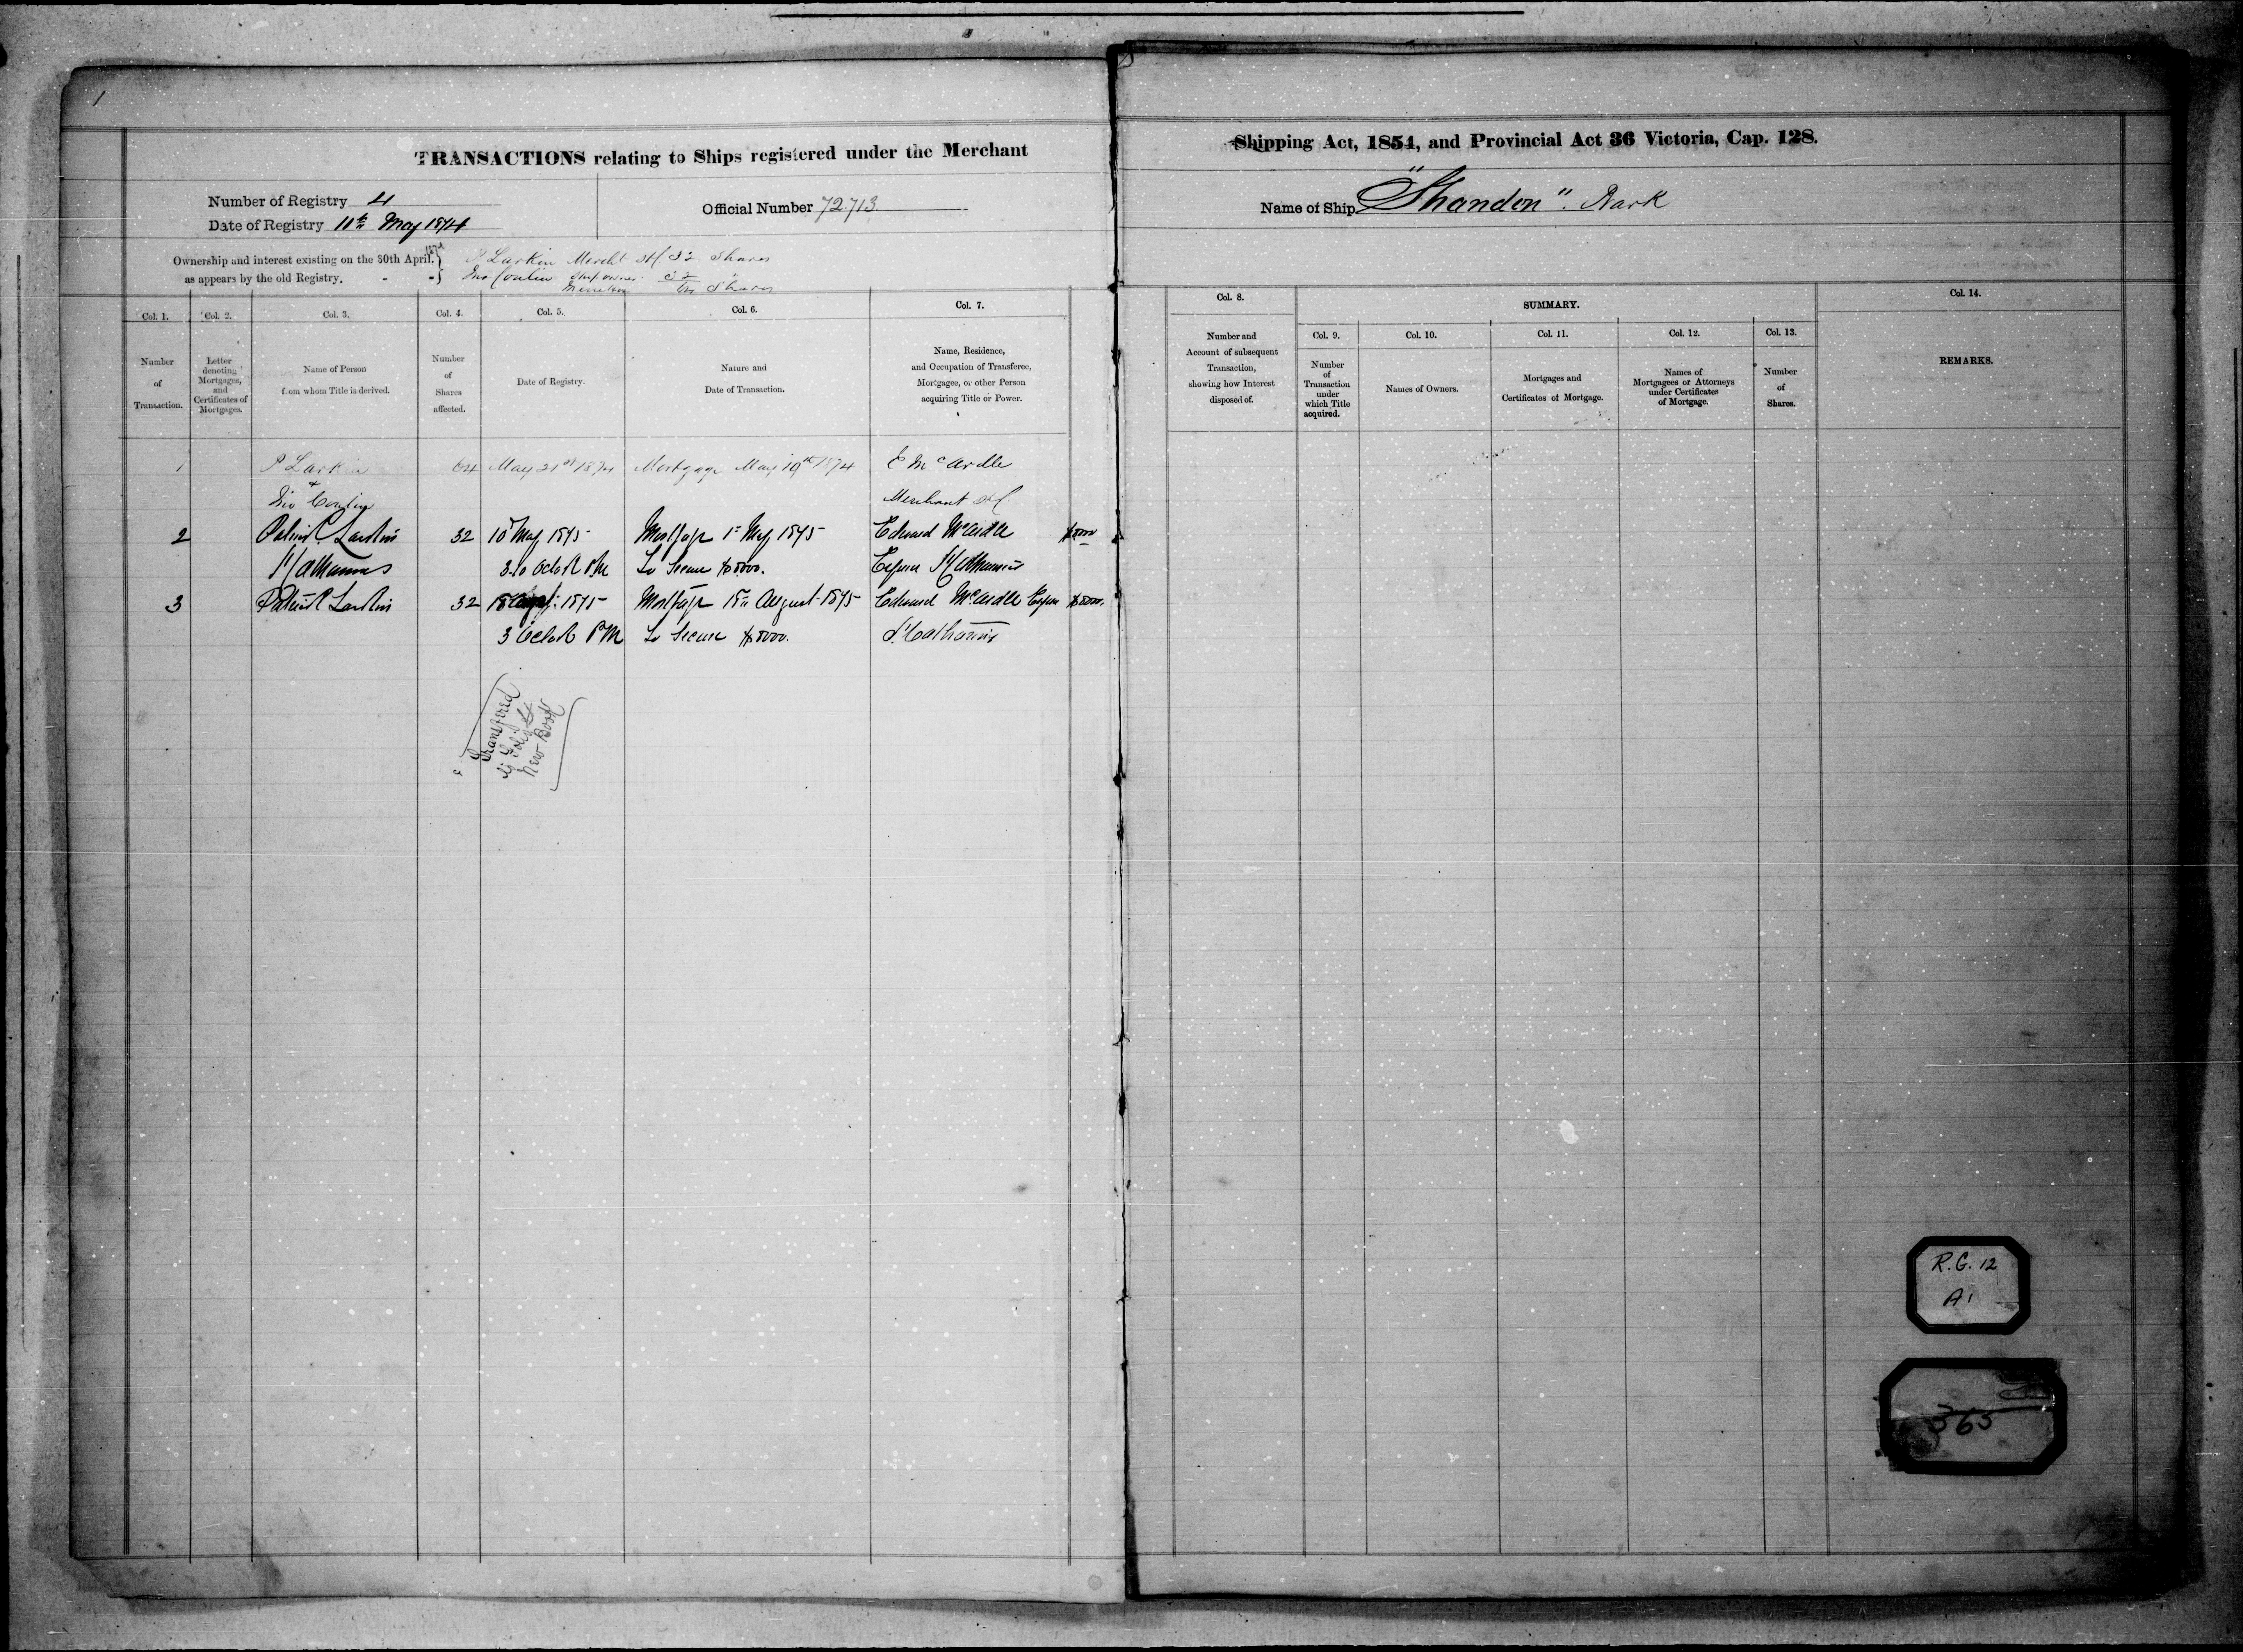 1
TRANSACTIONS relating to Ships registered under the Merchant
Number of Registry 4
Date of Registry 11th May 1874
Official Number 72713
Ownership and interest existing on the 30th April.
as appears by the old Registry.
P Larkin Mercht StC 32 Shares
Jno Conlin Ship owner 32
64 Shares
Col. 1.
Number
of
Transaction.
Col. 2.
Letter
denoting
Mortgages,
and
Certificates of
Mortgages.
Col. 3.
Name of Person
from whom Title is derived.
Col. 4.
Number
of
Shares
affected.
Col. 5.
Date of Registry.
Col. 6.
Nature and
Date of Transaction.
Col. 7.
Name, Residence,
and Occupation of Transferee,
Mortgagee, or other Person
acquiring Title or Power.
1 P Larkin 64 May 21st 1874 Mortgage May 19th 1874 E McArdle
& Jno Conlin Merchant StC.
2 Patrick Larkin 32 10 May 1875 Mortgage 1st May 1875 Edward McArdle $8000
St Catharines 3.10 oclock PM To Secure $8000. Esquire St Catharines
3 Patrick Larkin 32 18 Augt. 1875 Mortgage 18th August 1875 Edward McArdle Esquire $8000.
3 oclock PM To Secure $8000. St Catharines
Transferred
to Folio 4
New Book
Shipping Act, 1854, and Provincial Act 36 Victoria, Cap. 128.
Name of Ship "Shandon". Bark
Col. 8.
Number and
Account of subsequent
Transaction,
showing how Interest
disposed of.
SUMMARY.
Col. 9.
Number
of
Transaction
under
which Title
acquired.
Col. 10.
Names of Owners.
Col. 11.
Mortgages and
Certificates of Mortgage.
Col. 12.
Names of
Mortgagees or Attorneys
under Certificates
of Mortgage.
Col. 13.
Number
of
Shares.
Col. 14.
REMARKS.
R.G. 12
A1
365